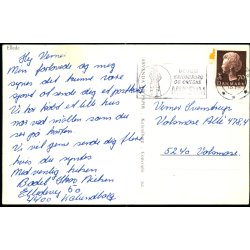 Elledo
Hej Verner
Min forlovede og mig
synes det kunne være
sjovt at sende dig et postkort
Vi har købt et lille hus
nær ved møllen som du
ser på kortet
Vi vil gerne sende dig flere
hvis du synes
Med venlig hilsen
Bodil Skov Nielsen
60
4400 Kalundborg
BESØG
KALUNDBORG
OG OMEGNS
70
Verner Svenstrup
Volsmose Alle
5240 Volsmose